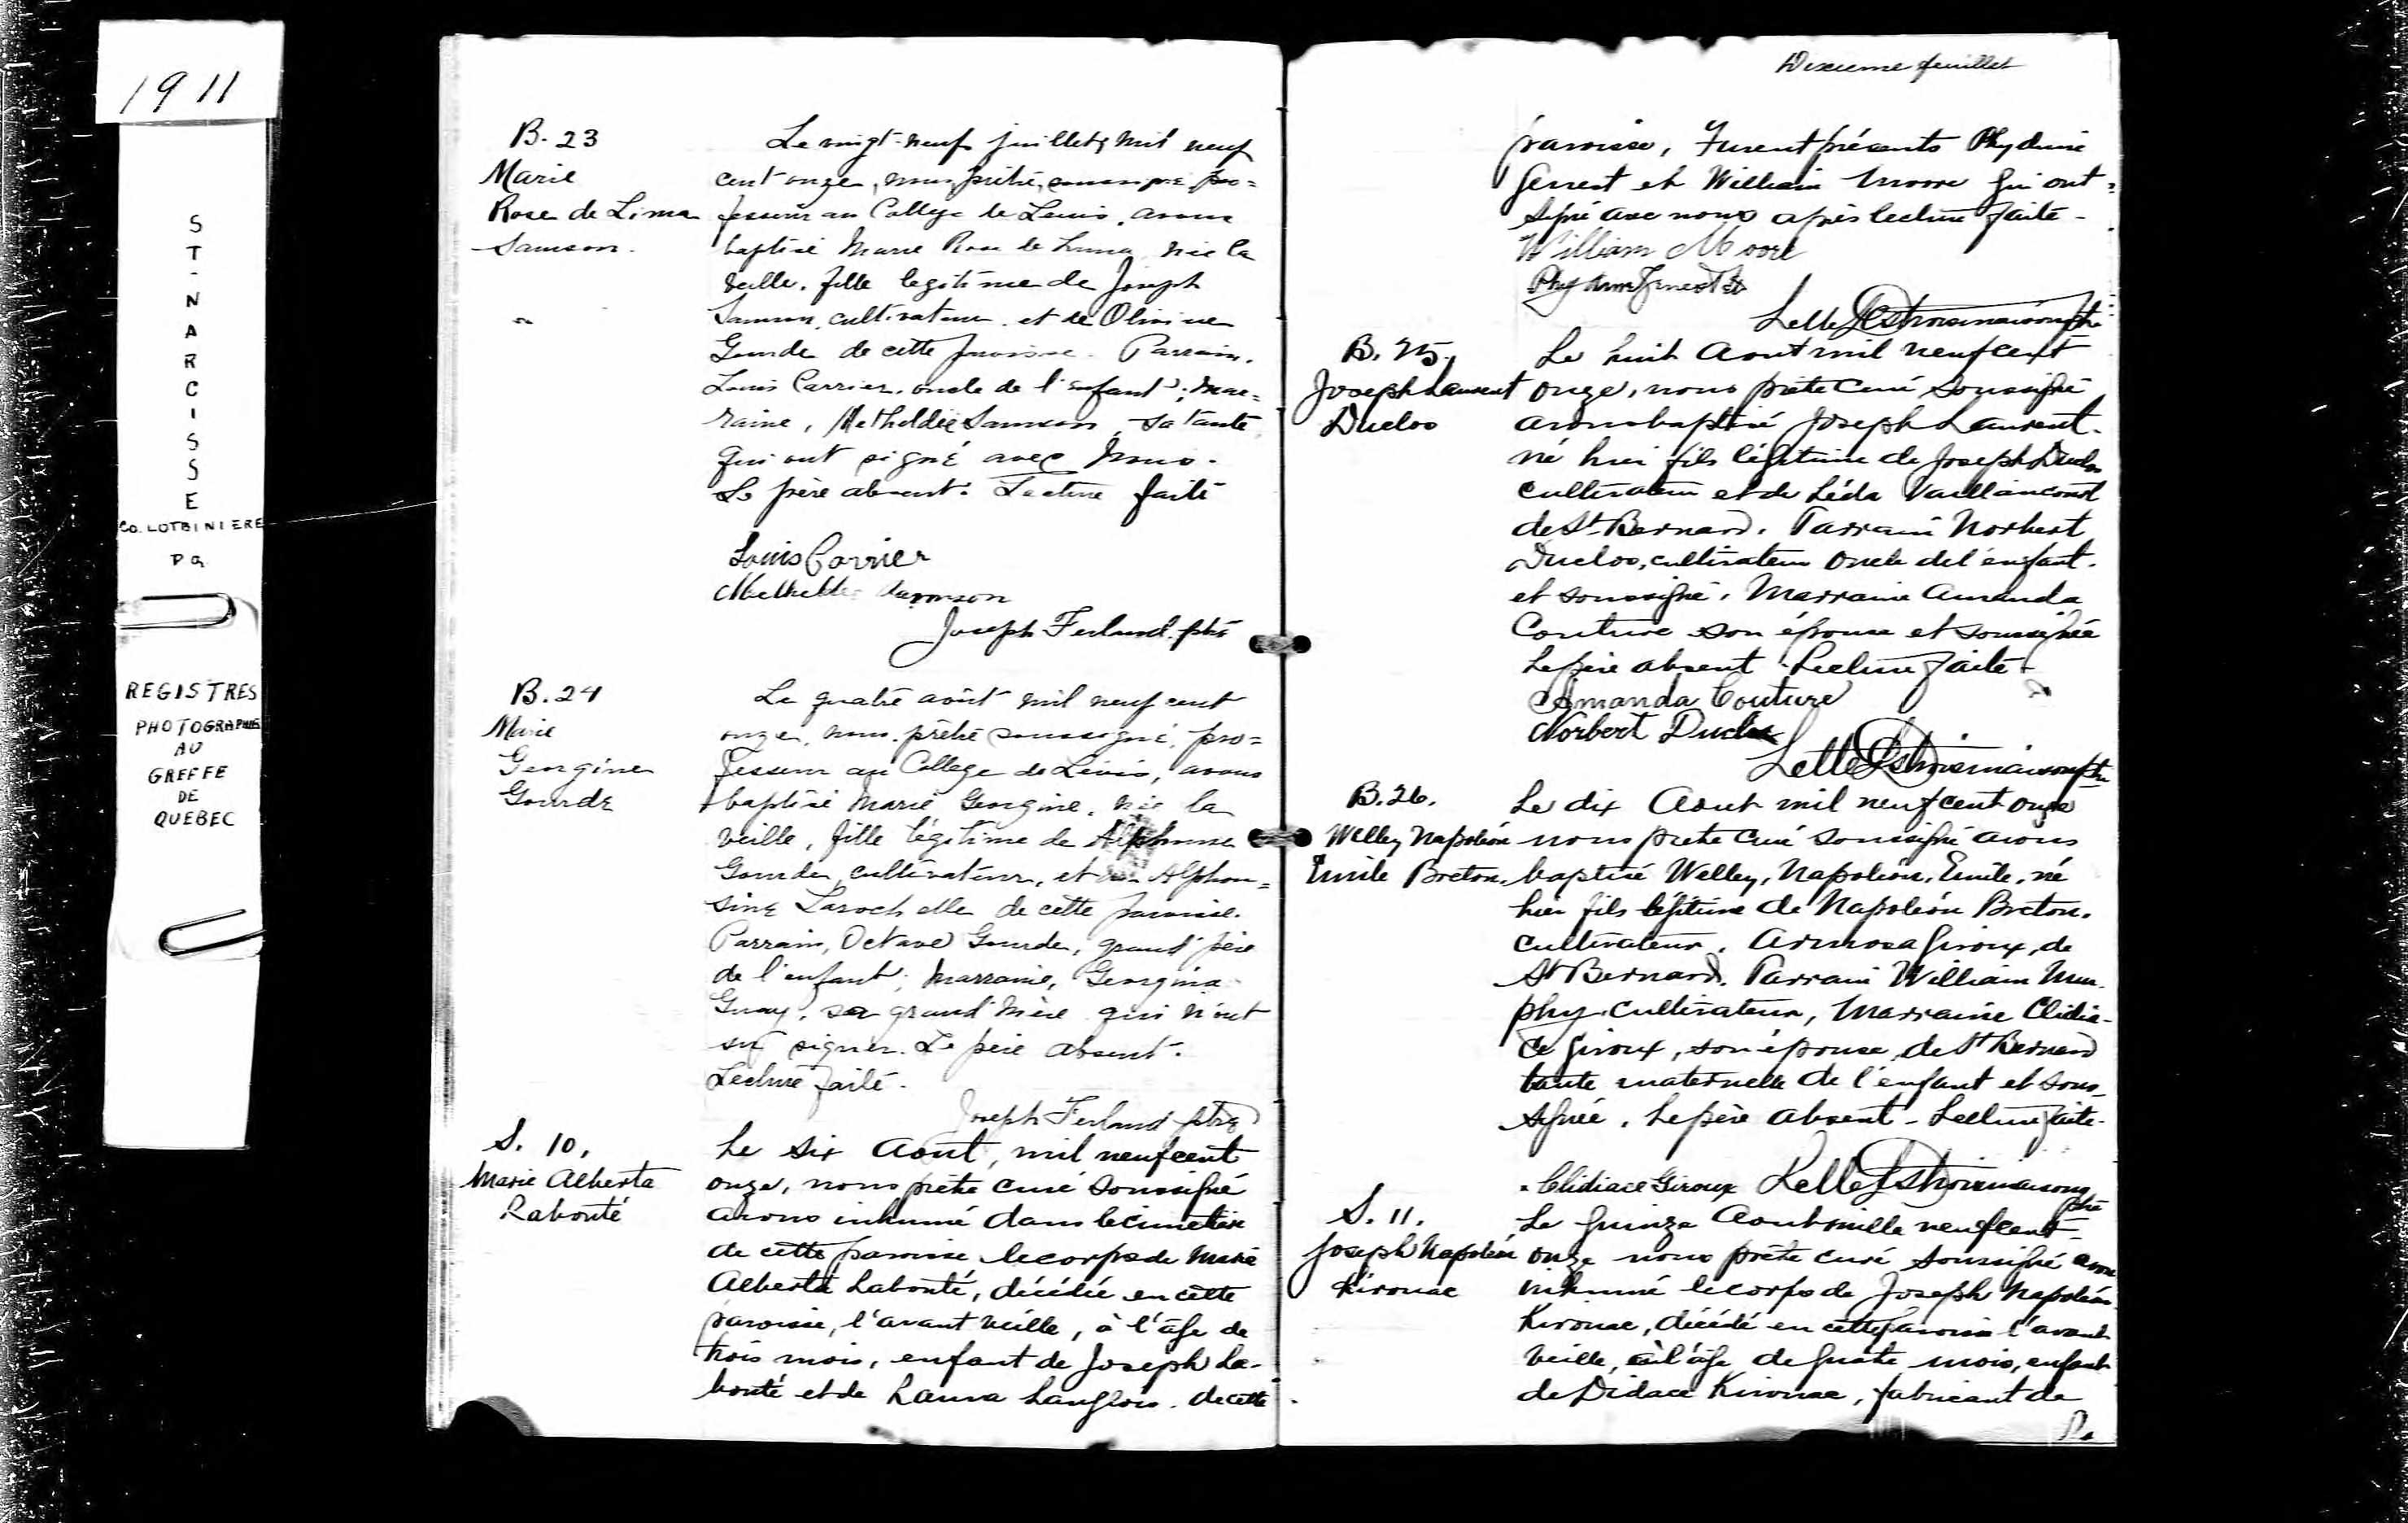 1911
ST-NARCISSE
CO. LOTBINIERE
P Q
REGISTRES
PHOTOGRAPHIES
AU
GREFFE
DE
QUEBEC
B. 23
Marie
Rose de Lima
Samson.
Le vingt-neuf juillet, mil neuf
cent onze, nous, prêtre, soussigné pro=
fesseur au College de Levis, avons
baptisé Marie Rose de Lima, née la
veille, fille legitime de Joseph
Samson, cultivateur et de Olivine
Gourde de cette paroisse. Parrain,
Louis Carrier, oncle de l'enfant; mar=
raine, Metheldée Samson, sa tante
qui ont signé avec Nous.
Le père absent. Lecture faite
Louis Carrier
Samson
Joseph Ferland, ptre
B. 24
Marie
Georgine
Gourde
Le quatre août mil neuf cent
onze, nous, prêtre soussigné, pro=
fesseur au College de Lévis, avons
baptisé Marie Georgine, née la
veille, fille légitime de Alphonse
Gourde, cultivateur, et de Alphon=
sine Larochelle de cette paroisse.
Parrain, Octave Gourde, grand'père
de l'enfant; marraine, Georgina
Guay, sa grand'mère qui n'ont
su signer. Le père absent.
Lecture faite.
Joseph Ferland ptre
S. 10.
Marie Alberta
Labonté
Le six Aout, mil neuf cent
onze, nous prêtre curé soussigné
avons inhumé dans le cimetière
de cette paroisse le corps de Marie
Alberta Labonté, décédée en cette
paroisse, l'avant veille, à l'âge de
trois mois, enfant de Joseph La-
bonté et de Laura Langlois. de cette
Dixieme feuillet
paroisse, Furent présents Phydime
Genest et William Moore qui ont
signé avec nous après lecture faite -
William Moore
Phydime Genest
B. 25.
Joseph Laurent
Duclos
Le huit Aout mil neuf cent
onze, nous prêtre curé soussigné
avons baptisé Joseph Laurent
né hier fils légitime de Joseph Duclos
cultivateur et de Léda Vaillancourt
de St-Bernard. Parrain Norbert
Duclos, cultivateur oncle de l'enfant.
et soussigné. Marraine Amanda
Couture son épouse et soussignée
Le père absent. Lecture faite -
Amanda Couture
Norbert Duclos
B. 26.
Welley Napoléon
Emile Breton.
Le dix Aout mil neuf cent onze
nous prêtre curé soussigné avons
baptisé Welley, Napoléon, Emile, né
hier fils légitime de Napoléon Breton.
cultivateur. Armosa Giroux, de
St Bernard. Parrain William Mur-
phy. cultivateur, Marraine Clidia-
ce Giroux, son épouse, de St Bernard
tante maternelle de l'enfant et sous-
signée. Le père absent - Lecture faite.
Clidiace Giroux
S. 11.
Joseph Napoléon
Kirouac
Le quinze Aout mille neuf cent
onze nous prêtre curé soussigné avons
inhumé le corps de Joseph Napoléon
Kirouac, décédé en cette paroisse l'avant
veille, à l'âge de quatre mois, enfant
de Didace Kirouac, fabricant de